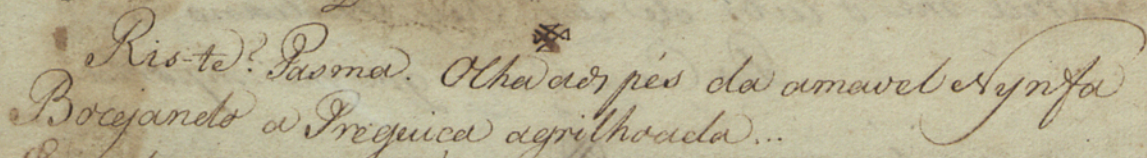 Ris-te? Pasma. Olha aos pés da amavel Nynfa
Bocejando a Preguiça agrilhoada...